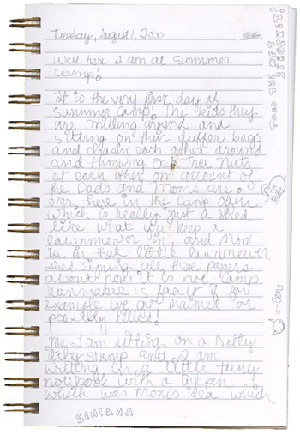 Tuesday, August 1, 2000
Well here I am at Summer
Camp!
It is the very first day of
Summer Camp. The kids they
are milling around and
sitting on their duffer bags
and chasing each other around
and throwing Oak Tree Nuts
at each other on account of
the Dads and Moms are
over here in the Camp Office
which is really just a shed
like what you keep a
lawnmower in, and Mom
is in that little lawnmower
shed signing all these papers
about how it is not Camp
fault if for
example we get Maimed or
possibly killed!
I am sitting on a
stump and I am
writing in a little teeny
notebook with a
which was Mom's idea which